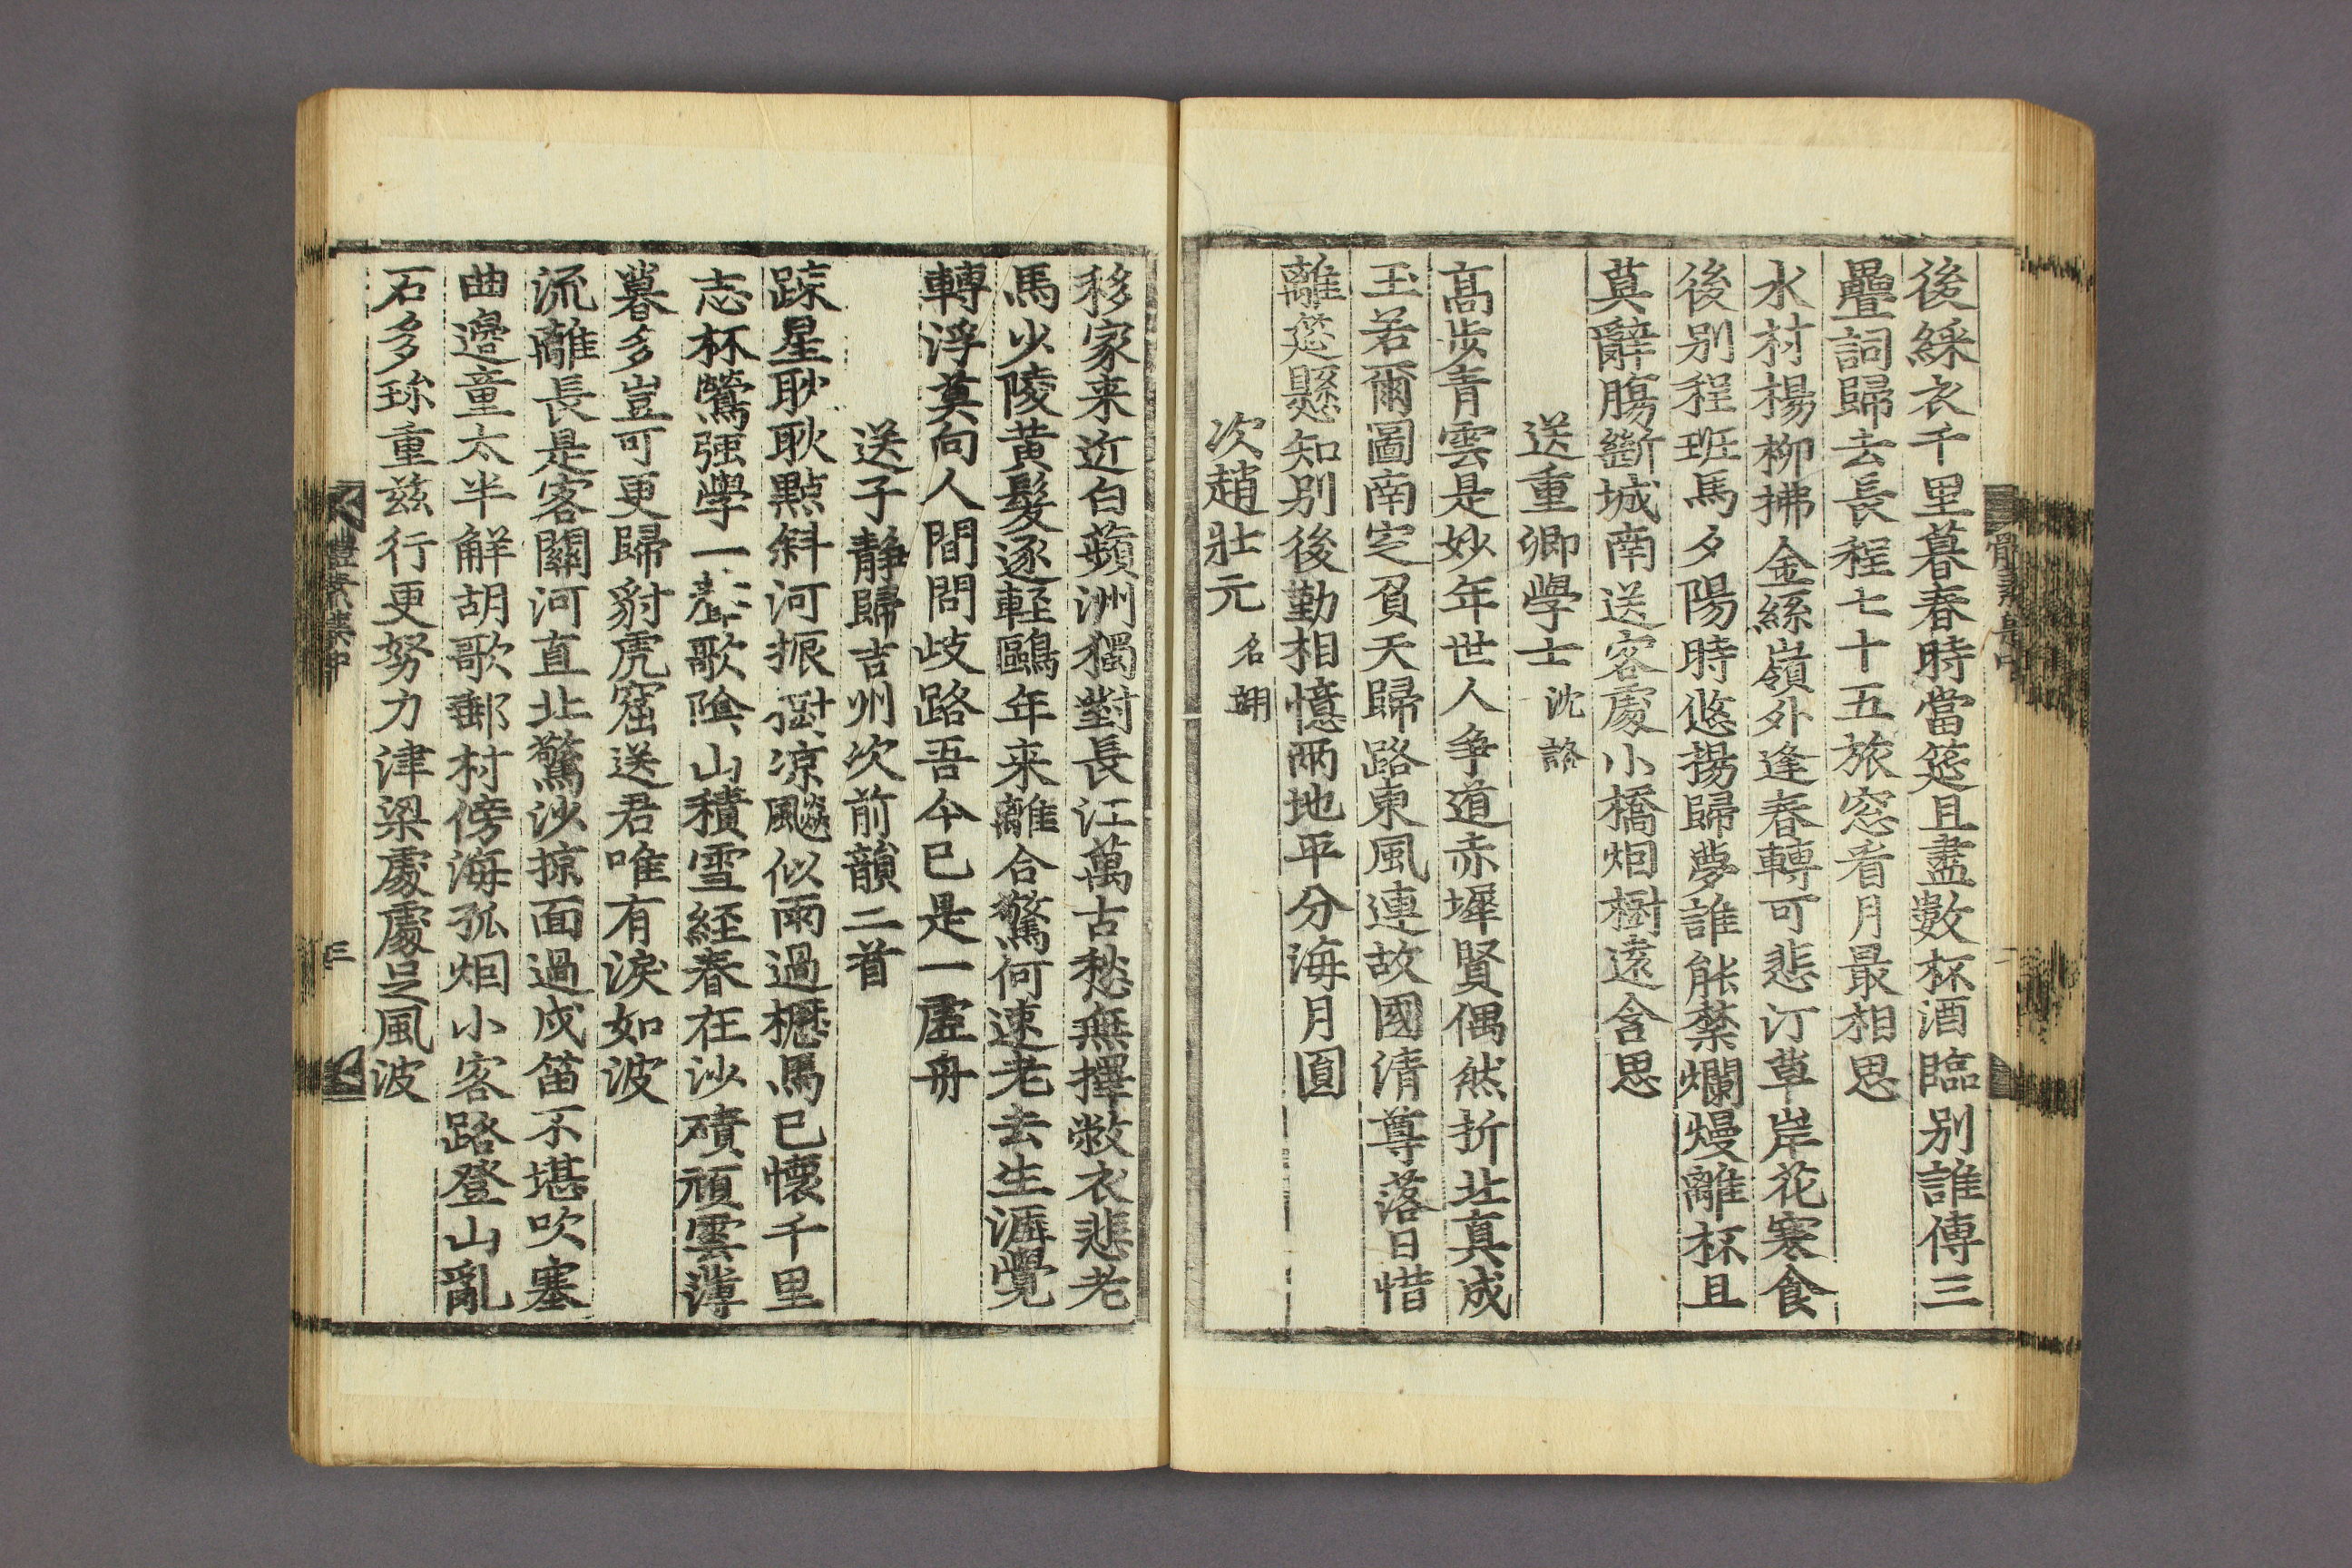 後綵衣千里暮春時當筵且盡數杯酒臨别誰傳三
疊詞歸去長程七十五旅窓看月最相思
水村楊柳拂金絲嶺外逢春轉可悲汀草岸花寒食
後别程班馬夕陽時悠揚歸夢誰能禁爛熳離杯且
莫辭膓斷城南送客處小橋烟樹遠含思
送重卿學士 沈詻
髙步青雲是妙年世人争道赤墀賢偶然折北真成
玉若爾圖南定負天歸路東風連故國清尊落日惜
離筵懸知别後勤相憶兩地平分海月圓
次趙壯元 名翊
移家来近白蘋洲獨對長江萬古愁無擇敝衣悲老
馬少陵黄髮逐輕鷗年来離合驚何速老去生涯覺
轉浮莫向人間問歧路吾今已是一虛舟
送子静歸吉州次前韻二首
踈星耿耿點斜河振樹凉飈似雨過櫪馬已懷千里
志杯鶯强學一聲歌陰山積雪經春在沙磧頑雲薄
暮多豈可更歸豺虎窟送君唯有淚如波
流離長是客關河直北驚沙掠面過戍笛不堪吹塞
曲邊童太半解胡歌郵村傍海孤烟小客路登山亂
石多珎重兹行更努力津梁處處足風波
三